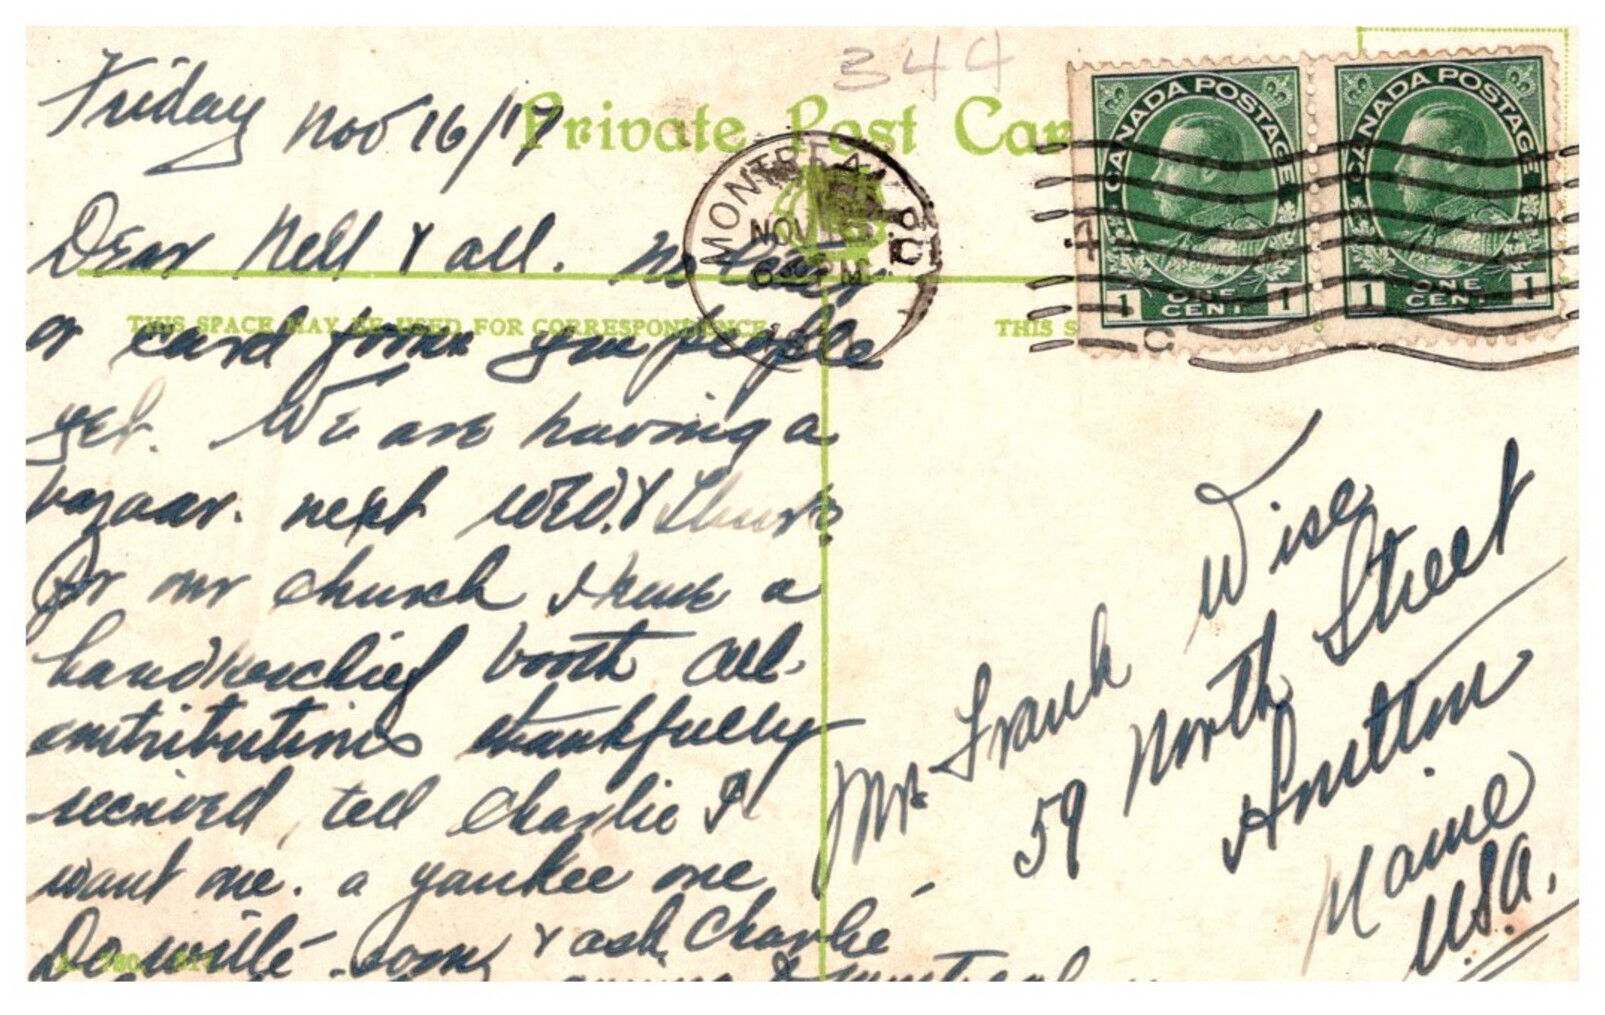 344
Friday Nov 16/17
Private Post Car
Dear Nell & all. No letter
or card from you people
yet. We are having a
bazaar. next WED. & Thurs
for our church I have a
handkerchief booth All
contributions thankfully
received, tell Charlie I
want one. a yankee one
Do write soon & ask Charlie
MONTREAL
NOV
6 30 PM
THIS SPACE MAY BE USED FOR CORRESPONDENCE
THIS S
CANADA POSTAGE
1 ONE CENT 1
CANADA POSTAGE
1 ONE CENT 1
Mr Frank Wise
59 North Street
Houlton
Maine
U.S.A.